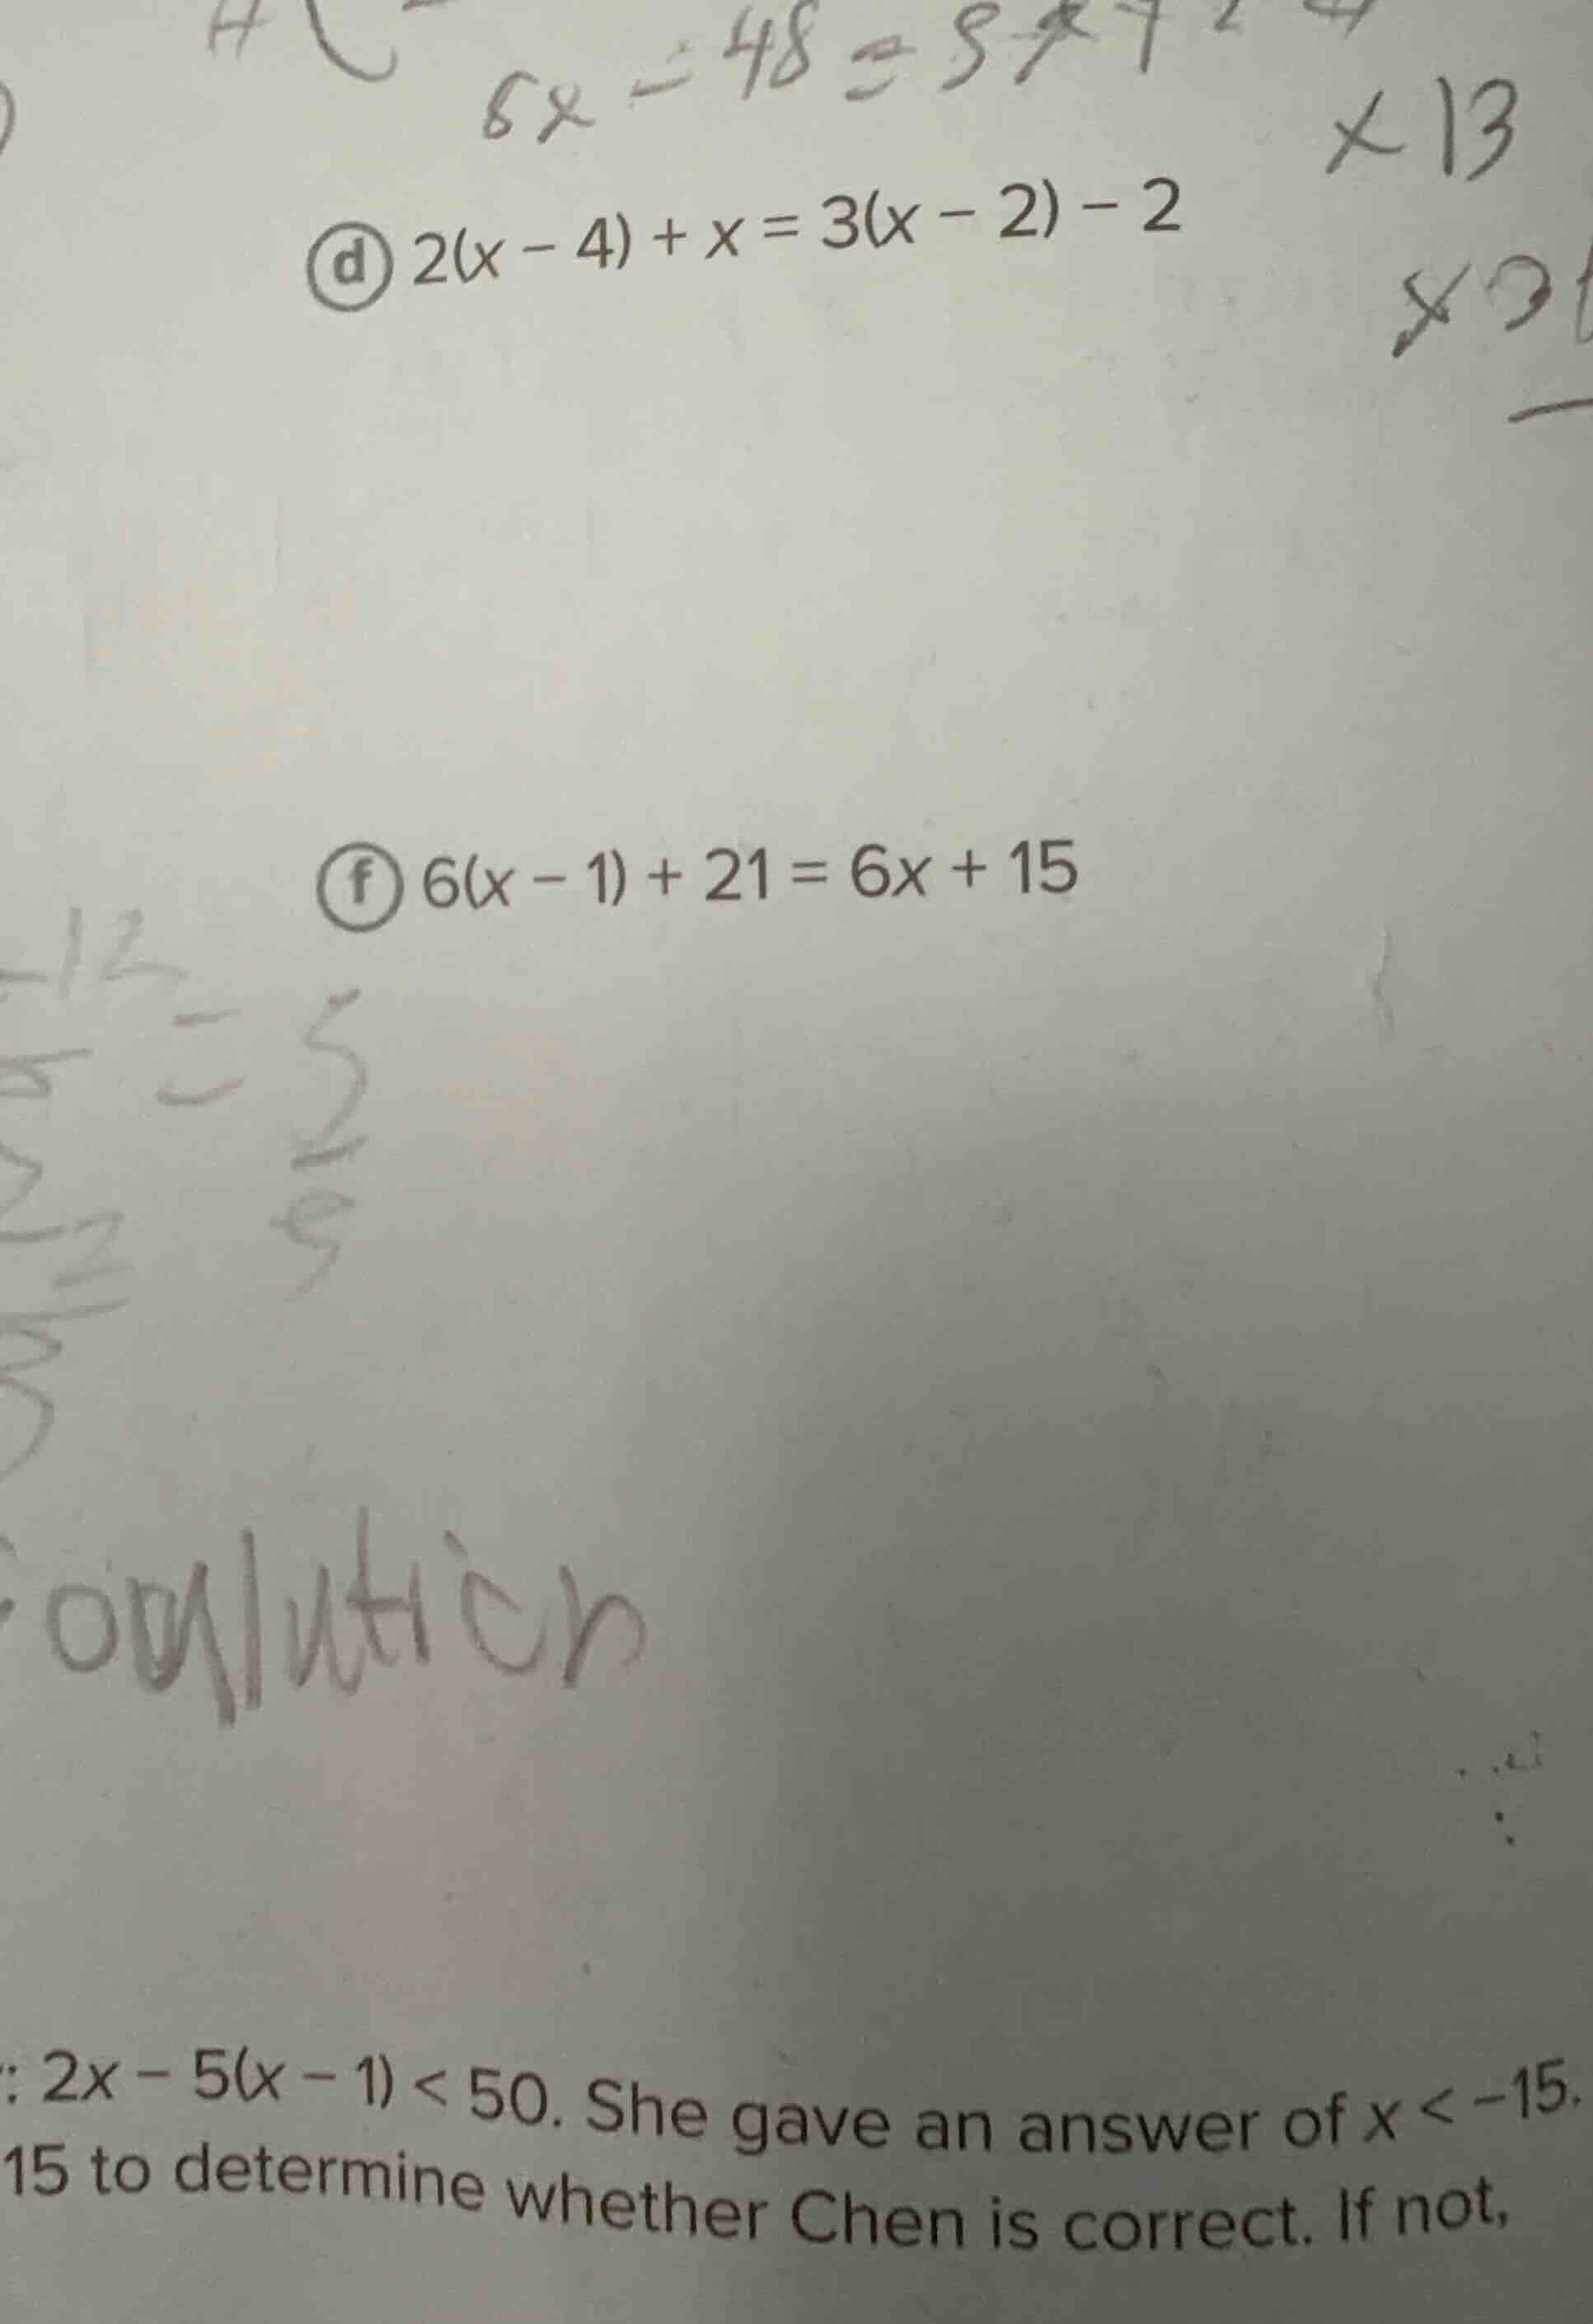 6x - 48 = 3x +
x 13
d 2(x – 4) + x = 3(x – 2) – 2
f 6(x – 1) + 21 = 6x + 15
-12
= 5
5
: 2x – 5(x – 1) < 50. She gave an answer of x < –15.
15 to determine whether Chen is correct. If not,